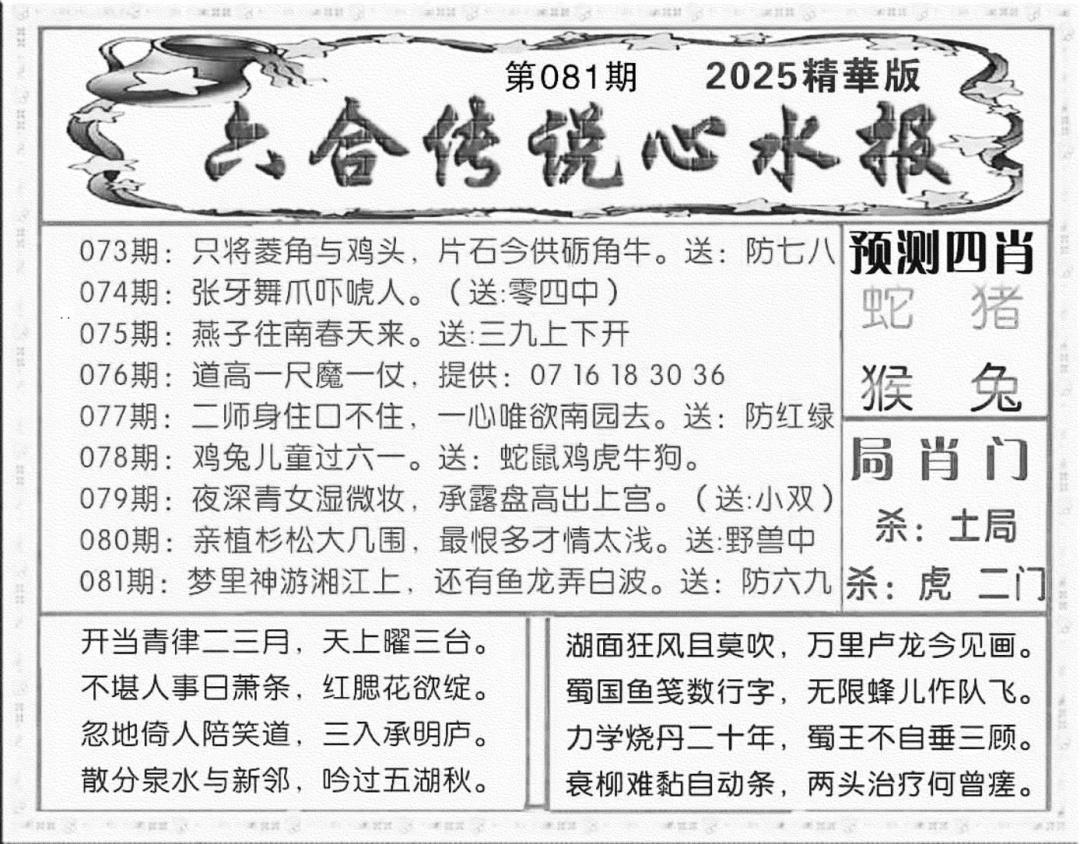 第081期 2025精華版
六合传说心水报
073期：只将菱角与鸡头，片石今供砺角牛。送：防七八
074期：张牙舞爪吓唬人。（送:零四中）
075期：燕子往南春天来。送:三九上下开
076期：道高一尺魔一仗，提供：07 16 18 30 36
077期：二师身住口不住，一心唯欲南园去。送：防红绿
078期：鸡兔儿童过六一。送：蛇鼠鸡虎牛狗。
079期：夜深青女湿微妆，承露盘高出上宫。（送:小双）
080期：亲植杉松大几围，最恨多才情太浅。送:野兽中
081期：梦里神游湘江上，还有鱼龙弄白波。送：防六九
预测四肖
蛇 猪
猴 兔
局肖门
杀：土局
杀：虎 二门
开当青律二三月，天上曜三台。
不堪人事日萧条，红腮花欲绽。
忽地倚人陪笑道，三入承明庐。
散分泉水与新邻，吟过五湖秋。
湖面狂风且莫吹，万里卢龙今见画。
蜀国鱼笺数行字，无限蜂儿作队飞。
力学烧丹二十年，蜀王不自垂三顾。
衰柳难黏自动条，两头治疗何曾瘥。